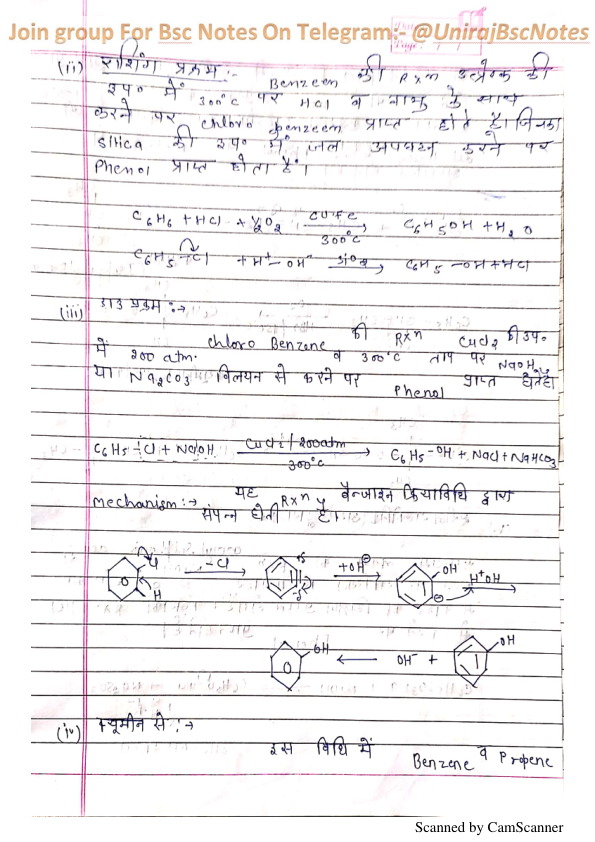 Join group For Bsc Notes On Telegram:- @UnirajBscNotes
(ii) राशिंग प्रक्रम:- Benzeen की Rxn उत्प्रेरक की
उप० में 300°C पर HCl व वायु के साथ
करने पर chloro benzeen प्राप्त होते है। जिनका
silica की उप० में जल अपघटन करने पर
Phenol प्राप्त होता है।
C6H6 + HCl + ½O2 CuFe 300°C → C6H5OH + H2O
C6H5-Cl + H+-OH- SiO2 → C6H5-OH + HCl
(iii) डाउ प्रक्रम:→
chloro Benzene की Rxn CuCl2 की उप०
में 200 atm. व 300°C ताप पर NaOH
या Na2CO3 विलयन से करने पर Phenol प्राप्त होता है
C6H5-Cl + NaOH CuCl2/200atm 300°C → C6H5-OH + NaCl + NaHCO3
Mechanism:→ यह Rxn बेन्जाइन क्रियाविधि द्वारा
संपन्न होती है।
Cl H -Cl → +OH⊖ → OH ⊖ H+OH →
OH ← OH- + OH
(iv) क्यूमीन से:→
इस विधि में Benzene व Propene
Scanned by CamScanner